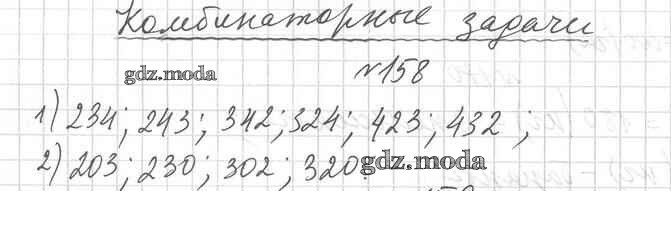 Комбинаторные задачи
gdz.moda
№158
1) 234; 243; 342; 324; 423; 432 ;
2) 203; 230; 302; 320. gdz.moda